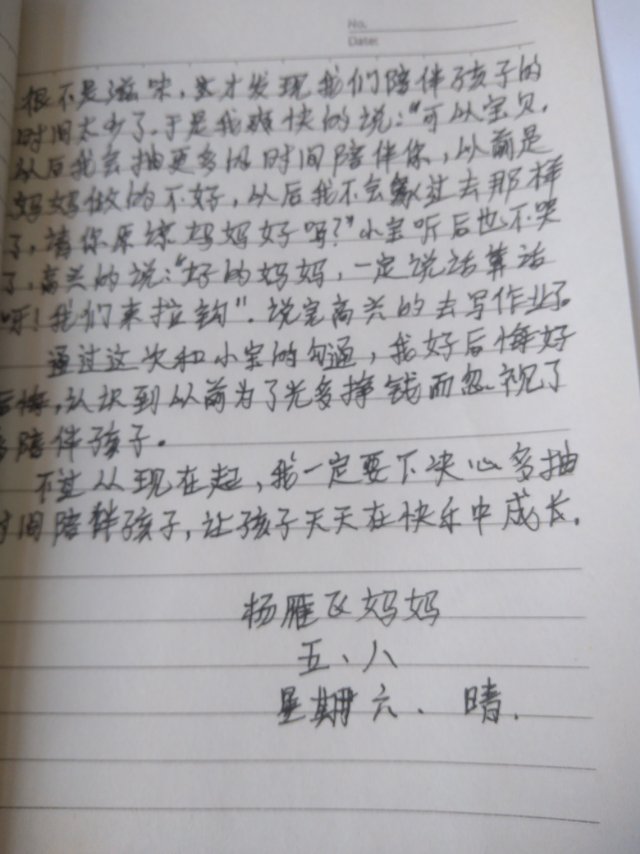 No.
Date:
很不是滋味，这才发现我们陪伴孩子的
时间太少了。于是我爽快的说："可以宝贝，
以后我会抽更多的时间陪伴你，以前是
妈妈做的不好，从后我不会象过去那样
了，请你原谅妈妈好吗？"小宝听后也不哭
了，高兴的说："好的妈妈，一定说话算话
呀！我们来拉钩"。说完高兴的去写作业了。
通过这次和小宝的勾通，我好后悔好
后悔，认识到以前为了光多挣钱而忽视了
陪伴孩子。
不过从现在起，我一定要下决心多抽
时间陪伴孩子，让孩子天天在快乐中成长。
杨雁飞妈妈
五、八
星期六、晴.